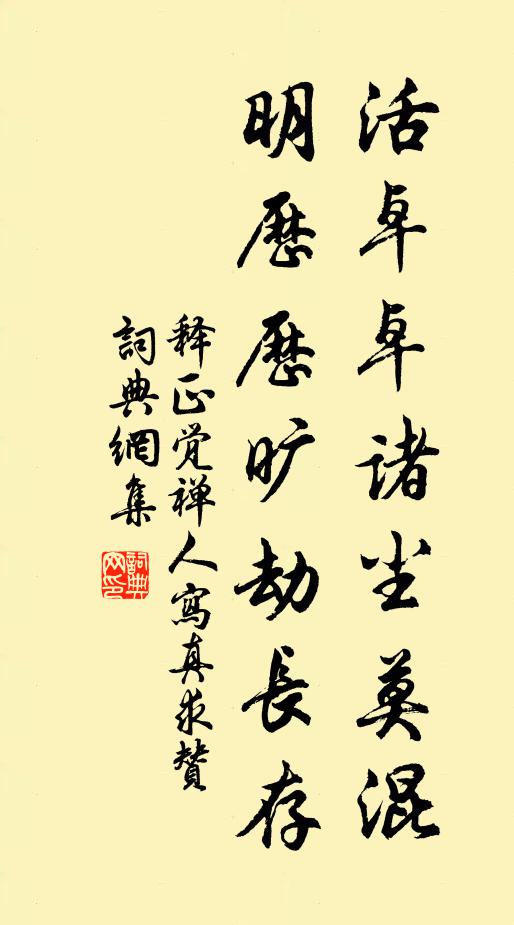 活卓卓诸尘莫混
明历历旷劫长存
释正觉禅人写真求赞
词典网集
词典网印